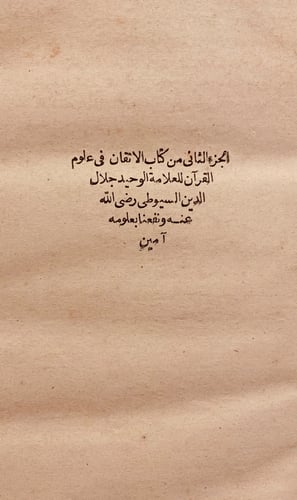 الجزء الثانى من كتاب الاتقان فى علوم
القرآن للعلامة الوحيد جلال
الدين السيوطى رضى الله
عنه ونفعنا بعلومه
آمين